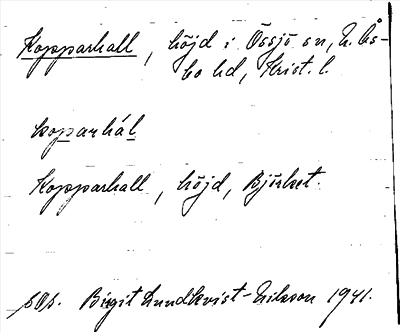 Kopparhall, höjd i Össjö sn, N. Ås-
bo hd, Krist. l.
kopar hál
Kopparhall, höjd, Björket.
Birgit Lundkvist-Nilsson 1941.